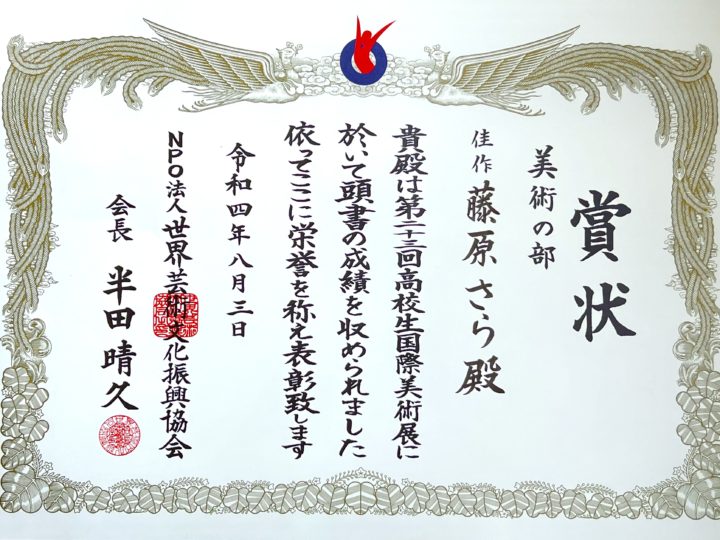 賞状
美術の部
佳作 藤原さら殿
貴殿は第二十三回高校生国際美術展に
於いて頭書の成績を収められました
依ってここに栄誉を称え表彰致します
令和四年八月三日
NPO法人 世界芸術文化振興協会
会長 半田晴久